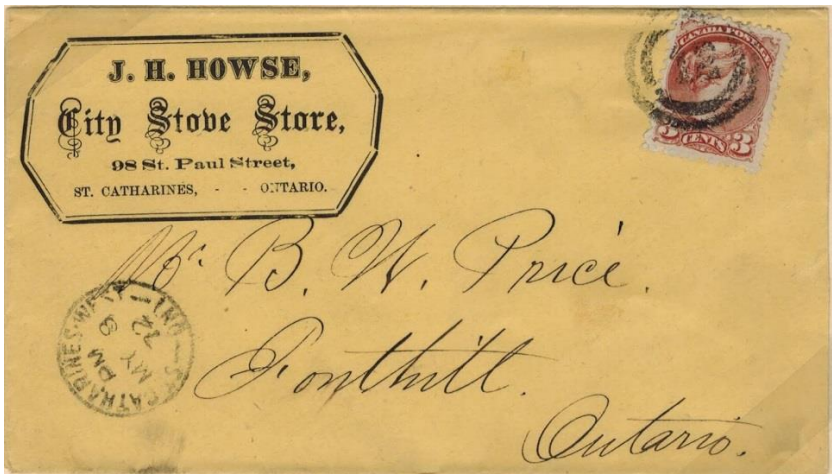 J. H. HOWSE,
City Stove Store,
98 St. Paul Street,
ST. CATHARINES, - - ONTARIO.
CANADA POSTAGE
3 CENTS 3
Mr. B. W. Price.
Fonthill.
Ontario.
ST CATHARINES·WEST—ONT—
PM
MY 8
72